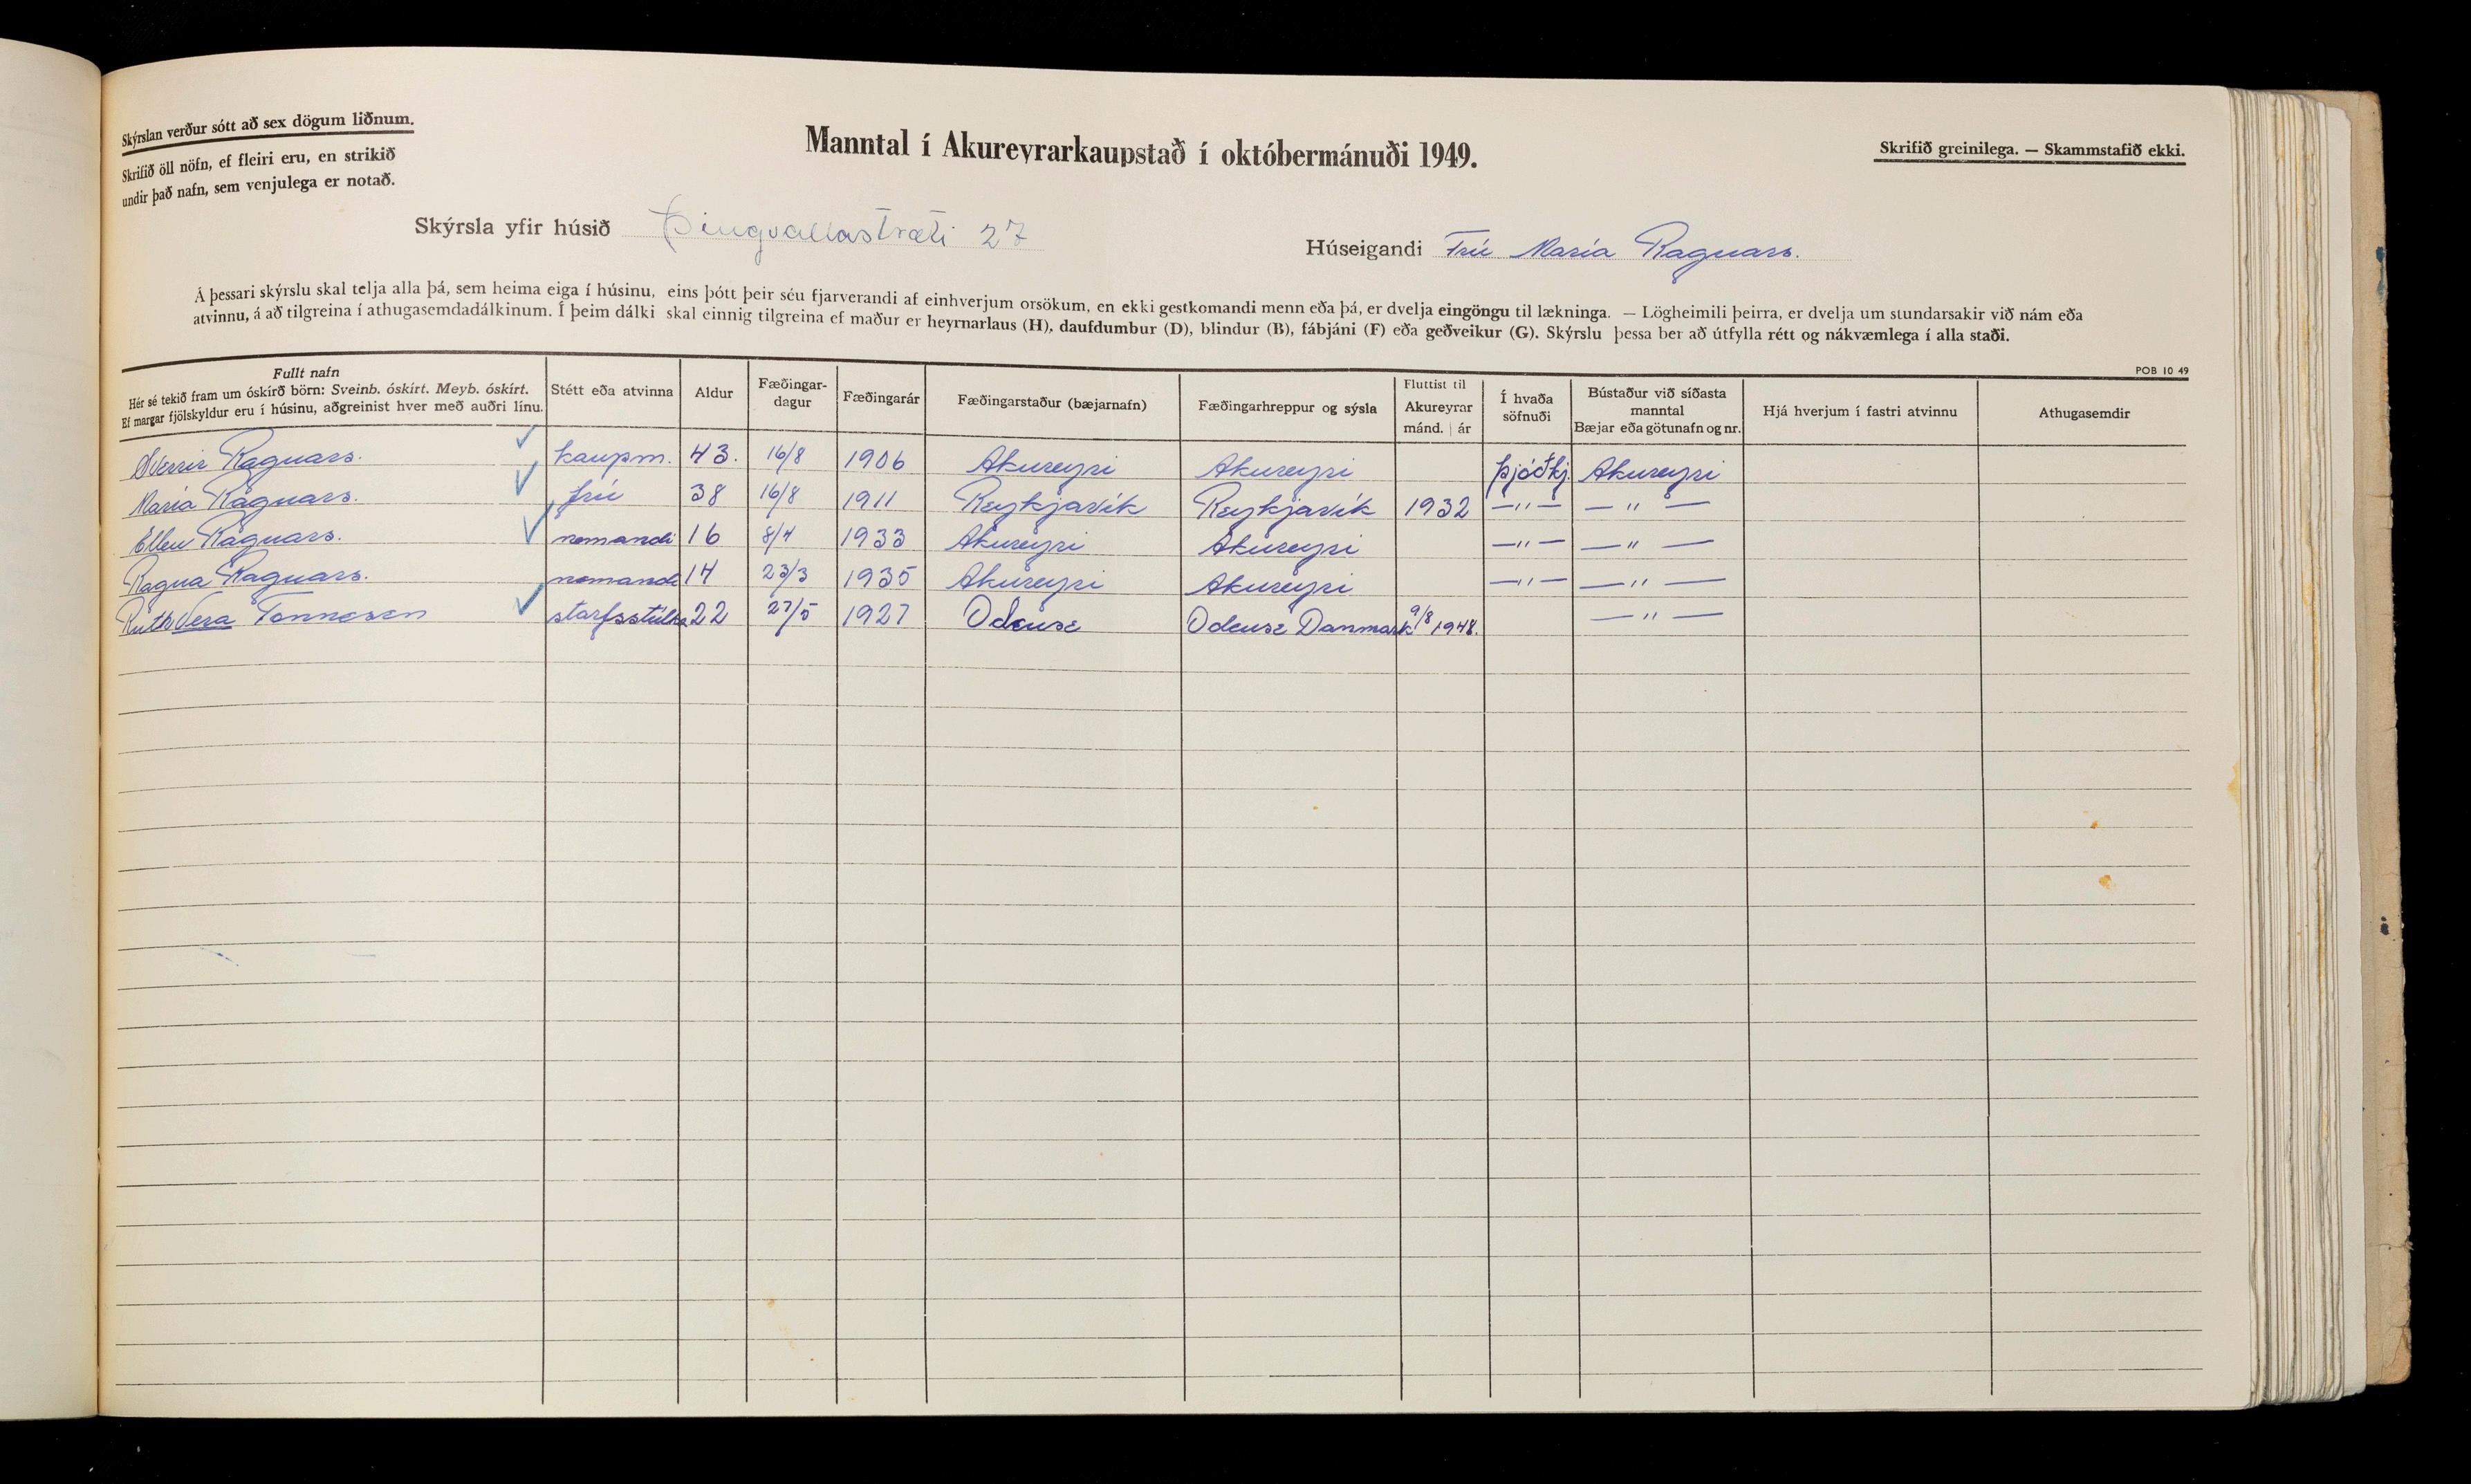 Skýrslan verður sótt að sex dögum liðnum.
Skrifið öll nöfn, ef fleiri eru, en strikið
undir það nafn, sem venjulega er notað.
Manntal í Akureyrarkaupstað í októbermánuði 1949.
Skrifið greinilega. — Skammstafið ekki.
Skýrsla yfir húsið Þingvallastræti 27
Húseigandi Frú María Ragnars.
Á þessari skýrslu skal telja alla þá, sem heima eiga í húsinu, eins þótt þeir séu fjarverandi af einhverjum orsökum, en ekki gestkomandi menn eða þá, er dvelja eingöngu til lækninga. — Lögheimili þeirra, er dvelja um stundarsakir við nám eða
atvinnu, á að tilgreina í athugasemdadálkinum. Í þeim dálki skal einnig tilgreina ef maður er heyrnarlaus (H), daufdumbur (D), blindur (B), fábjáni (F) eða geðveikur (G). Skýrslu þessa ber að útfylla rétt og nákvæmlega í alla staði.
POB 10 49
Fullt nafn
Hér sé tekið fram um óskírð börn: Sveinb. óskírt. Meyb. óskírt.
Ef margar fjölskyldur eru í húsinu, aðgreinist hver með auðri línu.
Stétt eða atvinna
Aldur
Fæðingar-
dagur
Fæðingarár
Fæðingarstaður (bæjarnafn)
Fæðingarhreppur og sýsla
Fluttist til
Akureyrar
mánd. | ár
Í hvaða
söfnuði
Bústaður við síðasta
manntal
Bæjar eða götunafn og nr.
Hjá hverjum í fastri atvinnu
Athugasemdir
Sverrir Ragnars. kaupm. 43. 16/8 1906 Akureyri Akureyri þjóðkj. Akureyri
María Ragnars. frú 38 16/8 1911 Reykjavík Reykjavík 1932 —"— — " —
Ellen Ragnars. nemandi 16 8/4 1933 Akureyri Akureyri —"— — " —
Ragna Ragnars. nemandi 14 23/3 1935 Akureyri Akureyri —"— — " —
Ruth Vera Tonnesen starfsstúlka 22 27/5 1927 Odense Odense Danmark 9/8 1948. — " —